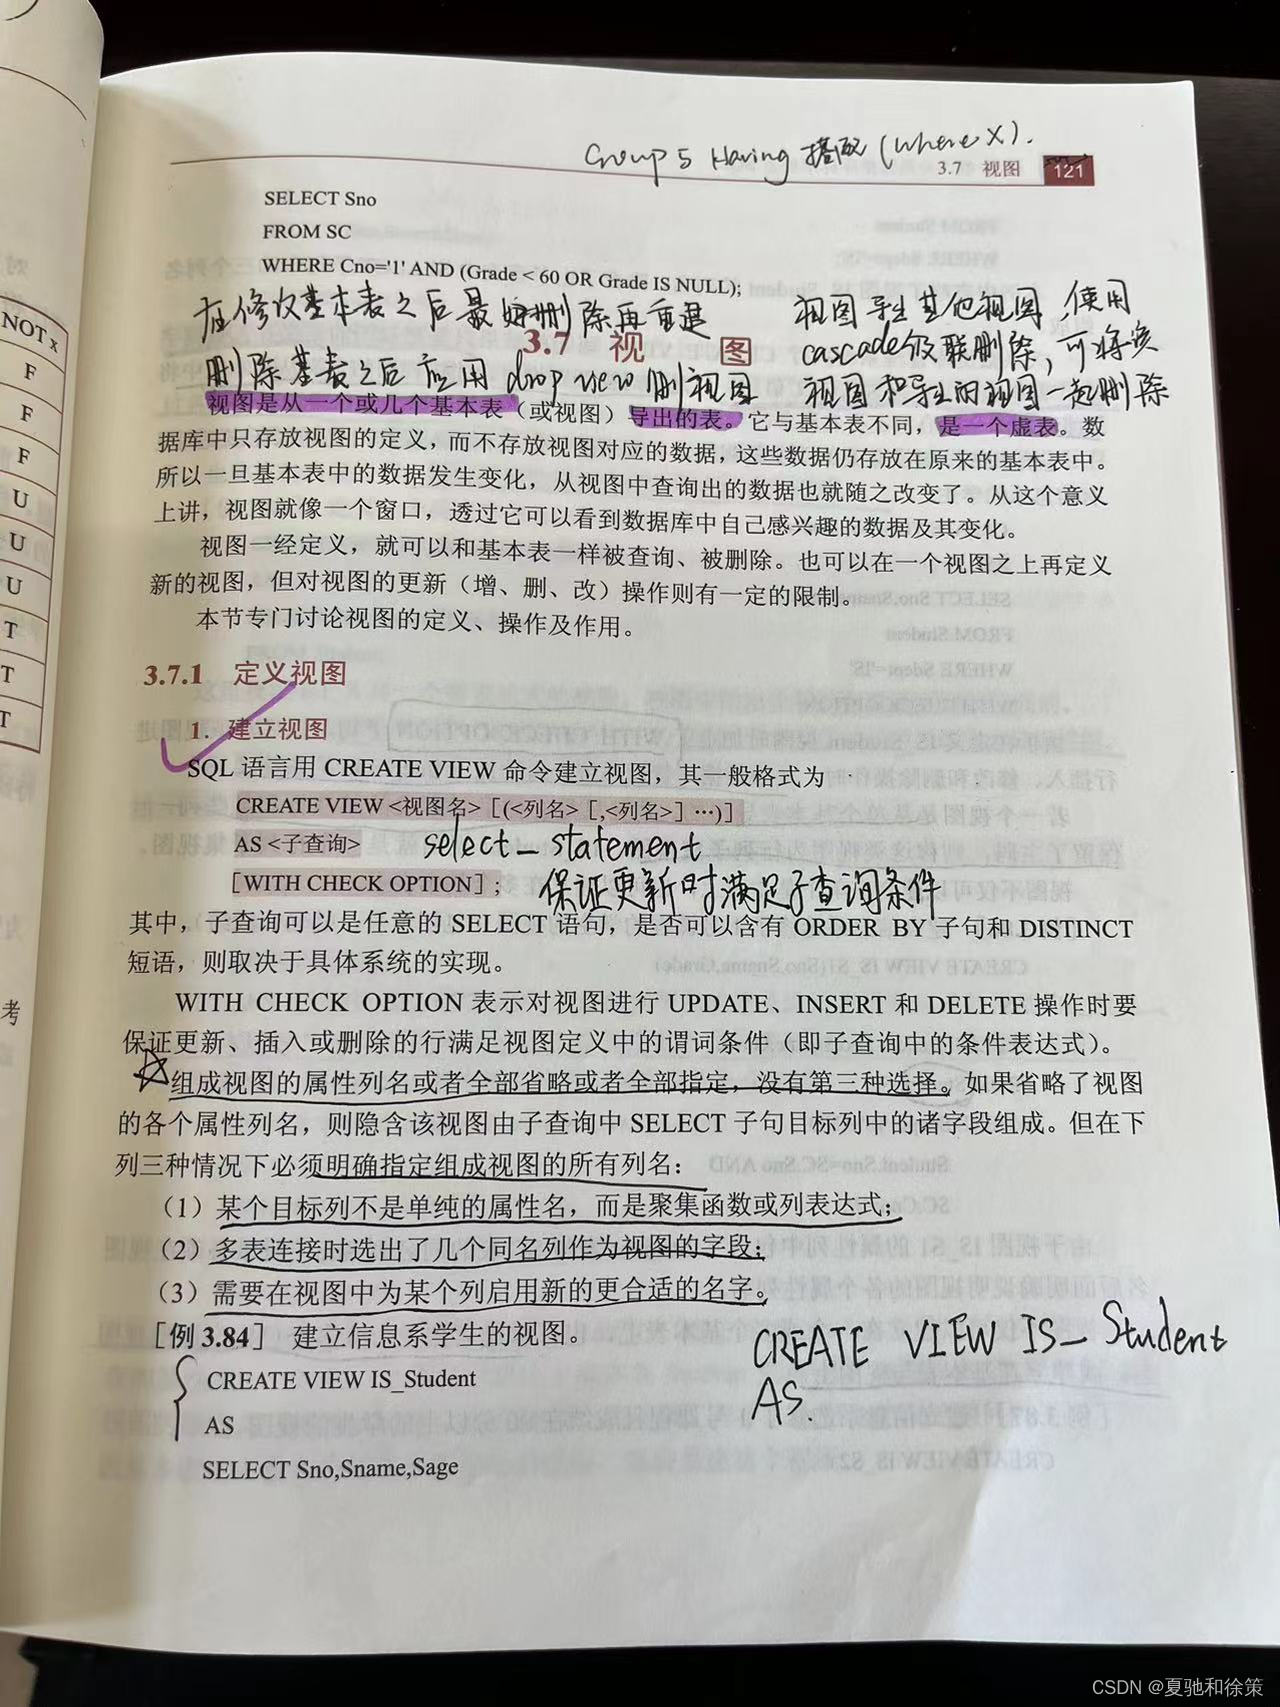 Group 与 Having 搭配 (where X).
3.7 视图 121
SELECT Sno
FROM SC
WHERE Cno='1' AND (Grade < 60 OR Grade IS NULL);
在修改基本表之后最好删除再重建
删除基表之后应用 drop view 删视图
视图导出其他视图,使用
cascade级联删除,可将该
视图和导出的视图一起删除
3.7 视 图
视图是从一个或几个基本表(或视图)导出的表。它与基本表不同,是一个虚表。数
据库中只存放视图的定义,而不存放视图对应的数据,这些数据仍存放在原来的基本表中。
所以一旦基本表中的数据发生变化,从视图中查询出的数据也就随之改变了。从这个意义
上讲,视图就像一个窗口,透过它可以看到数据库中自己感兴趣的数据及其变化。
视图一经定义,就可以和基本表一样被查询、被删除。也可以在一个视图之上再定义
新的视图,但对视图的更新(增、删、改)操作则有一定的限制。
本节专门讨论视图的定义、操作及作用。
3.7.1 定义视图
1. 建立视图
SQL 语言用 CREATE VIEW 命令建立视图,其一般格式为
CREATE VIEW <视图名> [(<列名> [,<列名>] …)]
AS <子查询> select_statement
[WITH CHECK OPTION]; 保证更新时满足子查询条件
其中,子查询可以是任意的 SELECT 语句,是否可以含有 ORDER BY 子句和 DISTINCT
短语,则取决于具体系统的实现。
WITH CHECK OPTION 表示对视图进行 UPDATE、INSERT 和 DELETE 操作时要
保证更新、插入或删除的行满足视图定义中的谓词条件(即子查询中的条件表达式)。
组成视图的属性列名或者全部省略或者全部指定,没有第三种选择。如果省略了视图
的各个属性列名,则隐含该视图由子查询中 SELECT 子句目标列中的诸字段组成。但在下
列三种情况下必须明确指定组成视图的所有列名:
(1)某个目标列不是单纯的属性名,而是聚集函数或列表达式;
(2)多表连接时选出了几个同名列作为视图的字段;
(3)需要在视图中为某个列启用新的更合适的名字。
[例 3.84] 建立信息系学生的视图。
CREATE VIEW IS_Student
AS
SELECT Sno,Sname,Sage
CREATE VIEW IS_Student
AS.
NOT x
F
F
F
U
U
U
T
T
T
考
CSDN @夏驰和徐策